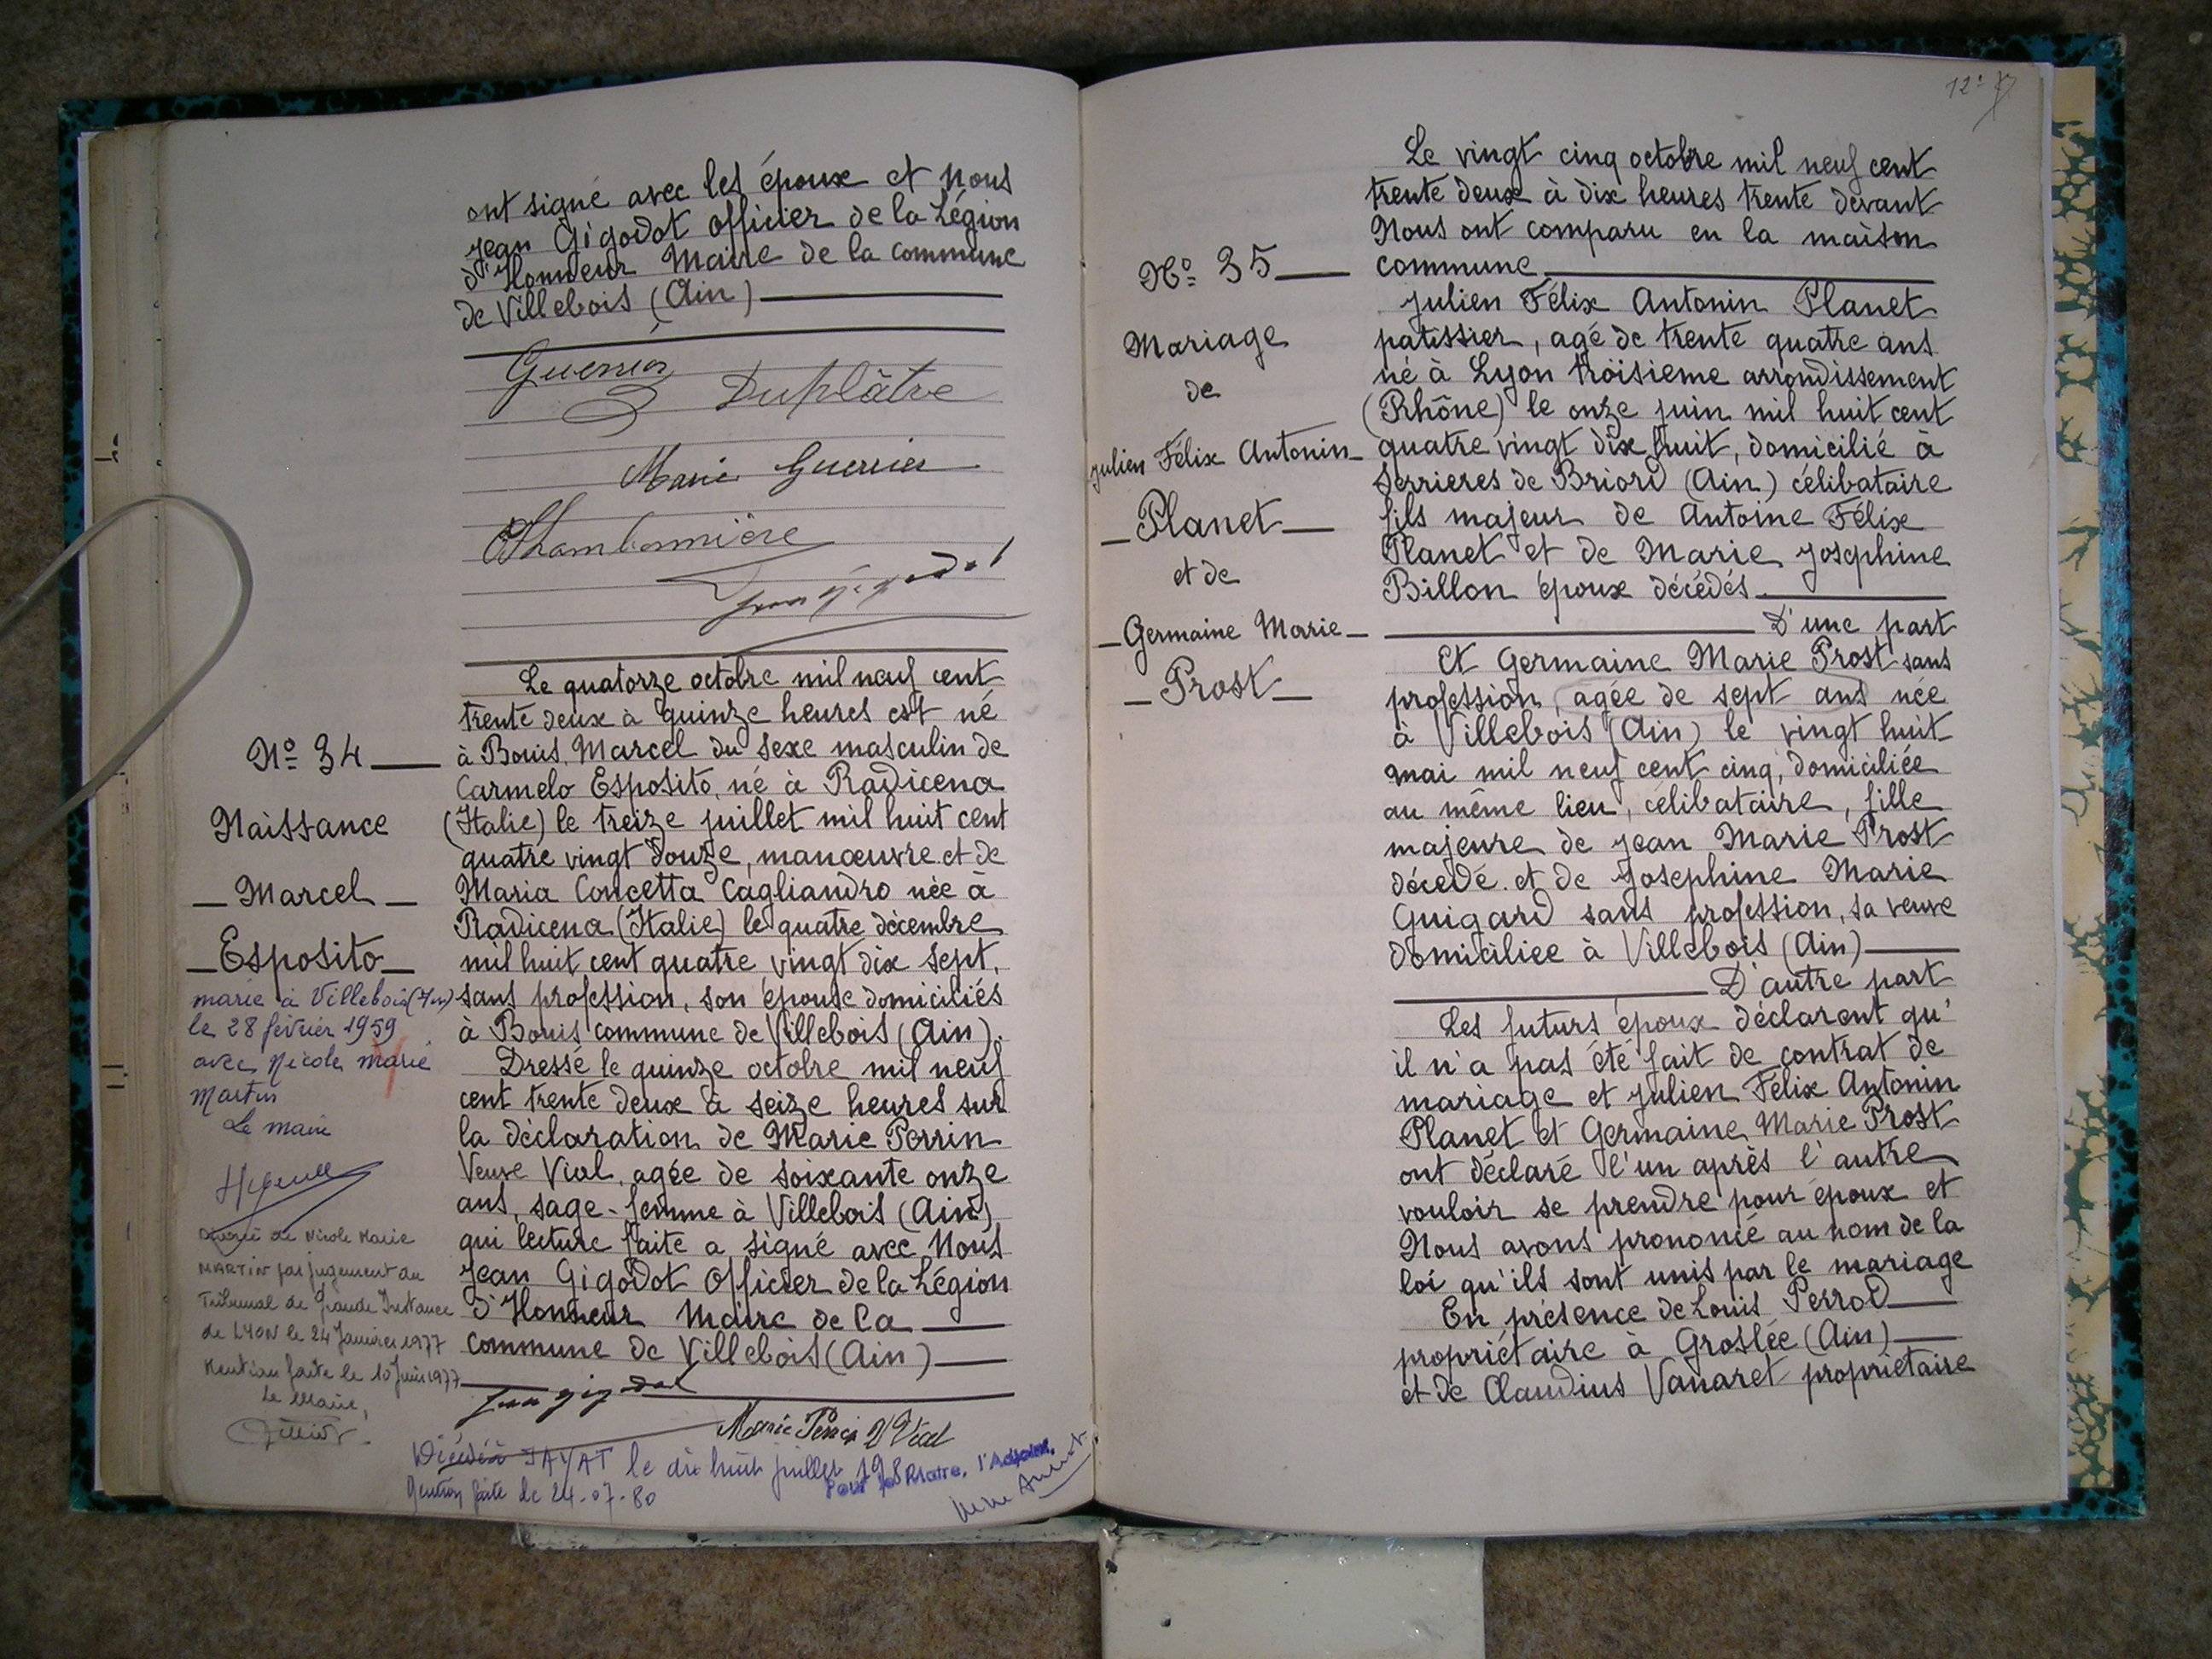 ont signé avec les époux et Nous
Jean Gigodot Officier de la Légion
d'Honneur Maire de la commune
de Villebois (Ain)
Guerrier
Duplâtre
Marie Guerrier
Chambonnière
Jean Gigodot
Nº 34
Naissance
Marcel
Esposito
marié à Villebois (Ain)
le 28 février 1959
avec Nicole Marie
Martin
Le maire
Divorcé de Nicole Marie
MARTIN par jugement du
Tribunal de Grande Instance
de LYON le 24 Janvier 1977
Mention faite le 10 Juin 1977
Le Maire,
Le quatorze octobre mil neuf cent
trente deux à quinze heures est né
à Bouis, Marcel du sexe masculin de
Carmelo Esposito, né à Radicena
(Italie) le treize juillet mil huit cent
quatre vingt douze, manœuvre et de
Maria Concetta Cagliandro née à
Radicena (Italie) le quatre décembre
mil huit cent quatre vingt dix sept,
sans profession, son épouse domiciliés
à Bouis commune de Villebois (Ain).
Dressé le quinze octobre mil neuf
cent trente deux à seize heures sur
la déclaration de Marie Perrin
Veuve Vial, agée de soixante onze
ans, sage-femme à Villebois (Ain)
qui lecture faite a signé avec Nous
Jean Gigodot Officier de la Légion
d'Honneur Maire de la
commune de Villebois (Ain)
Jean Gigodot
Marie Perrin Vve Vial
Décédé à JAYAT le dix huit juillet 198
Mention faite le 24-07-80
Pour le Maire, l'Adjoint,
12
Nº 35
Mariage
de
Julien Félix Antonin
Planet
et de
Germaine Marie
Prost
Le vingt cinq octobre mil neuf cent
trente deux à dix heures trente devant
Nous ont comparu en la maison
commune
Julien Félix Antonin Planet
patissier, agé de trente quatre ans
né à Lyon troisieme arrondissement
(Rhône) le onze juin mil huit cent
quatre vingt dix huit, domicilié à
Serrieres de Briord (Ain) célibataire
fils majeur de Antoine Félix
Planet et de Marie Josephine
Billon époux décédés
D'une part
Et Germaine Marie Prost sans
profession, agée de sept ans née
à Villebois (Ain) le vingt huit
mai mil neuf cent cinq, domiciliée
au même lieu, célibataire, fille
majeure de Jean Marie Prost
décedé et de Josephine Marie
Guigard sans profession, sa veuve
domiciliee à Villebois (Ain)
D'autre part
Les futurs époux déclarent qu'
il n'a pas été fait de contrat de
mariage et Julien Félix Antonin
Planet et Germaine Marie Prost
ont déclaré l'un après l'autre
vouloir se prendre pour époux et
Nous avons prononcé au nom de la
loi qu'ils sont unis par le mariage
En présence de Louis Perrod
propriétaire à Groslée (Ain)
et de Claudius Vanaret propriétaire